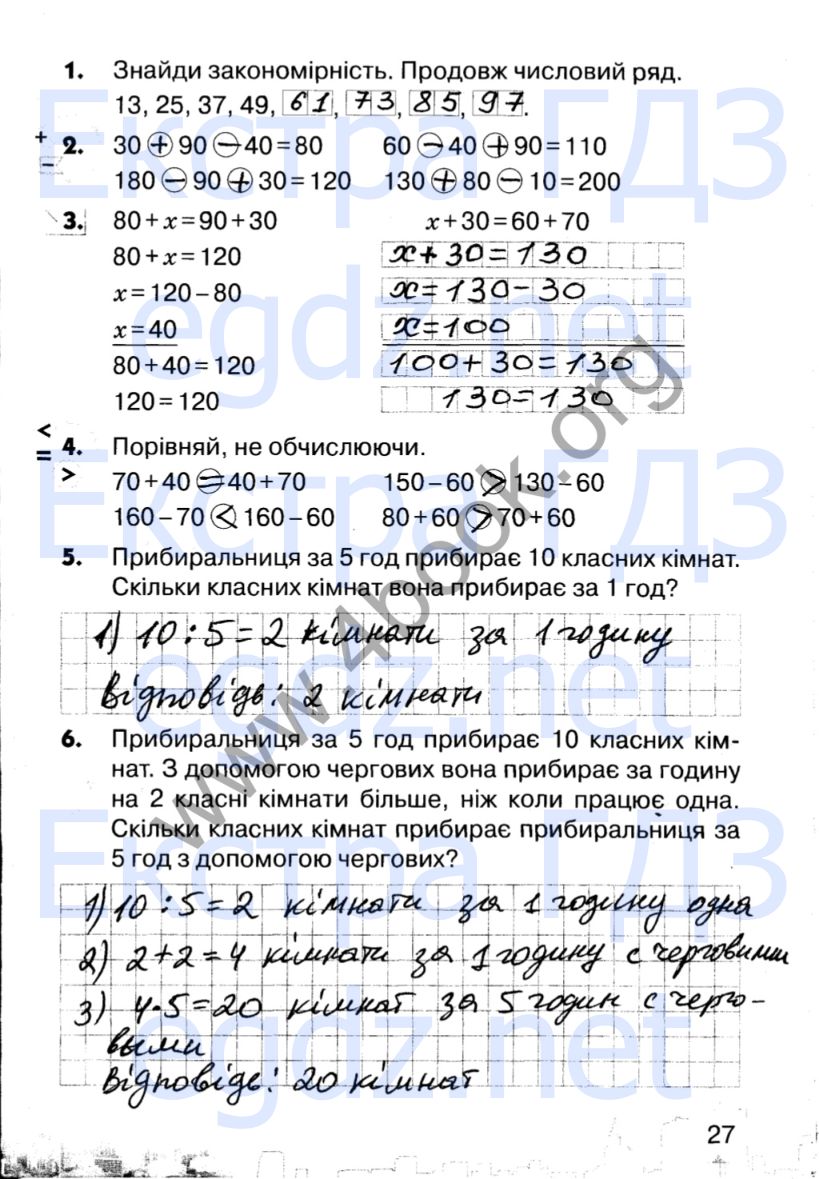 1. Знайди закономірність. Продовж числовий ряд.
13, 25, 37, 49, 61, 73, 85, 97.
+ − 2. 30 + 90 − 40 = 80 60 − 40 + 90 = 110
180 − 90 + 30 = 120 130 + 80 − 10 = 200
3. 80 + x = 90 + 30 x + 30 = 60 + 70
80 + x = 120 x + 30 = 130
x = 120 − 80 x = 130 − 30
x = 40 x = 100
80 + 40 = 120 100 + 30 = 130
120 = 120 130 = 130
< = > 4. Порівняй, не обчислюючи.
70 + 40 = 40 + 70 150 − 60 > 130 − 60
160 − 70 < 160 − 60 80 + 60 > 70 + 60
5. Прибиральниця за 5 год прибирає 10 класних кімнат.
Скільки класних кімнат вона прибирає за 1 год?
1) 10 : 5 = 2 кімнати за 1 годину
Відповідь: 2 кімнати
6. Прибиральниця за 5 год прибирає 10 класних кім-
нат. З допомогою чергових вона прибирає за годину
на 2 класні кімнати більше, ніж коли працює одна.
Скільки класних кімнат прибирає прибиральниця за
5 год з допомогою чергових?
1) 10 : 5 = 2 кімнати за 1 годину одна
2) 2 + 2 = 4 кімнати за 1 годину с черговими
3) 4 · 5 = 20 кімнат за 5 годин с черго-
выми
Відповідь: 20 кімнат
27
Екстра ГДЗ
egdz.net
Екстра ГДЗ
egdz.net
Екстра ГДЗ
egdz.net
www.4book.org